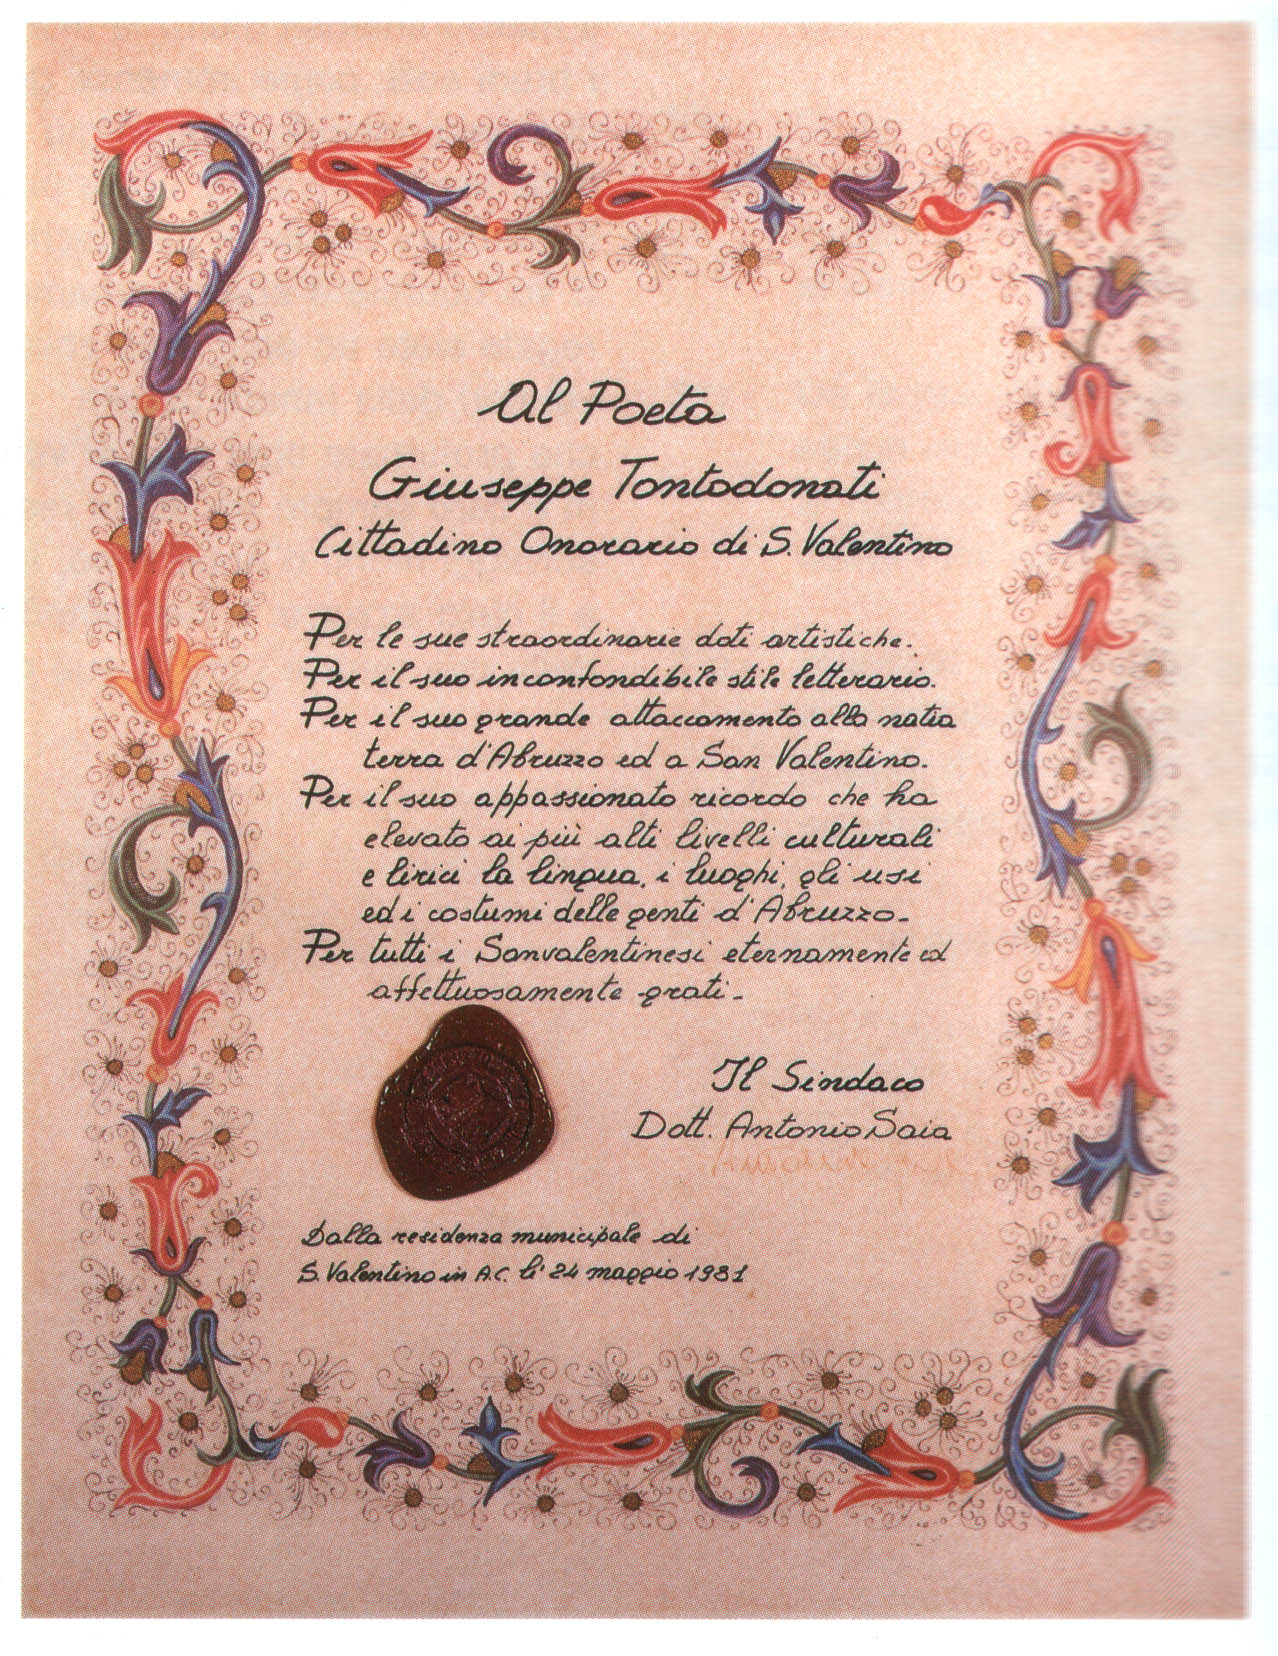 Al Poeta
Giuseppe Tontodonati
Cittadino Onorario di S. Valentino
Per le sue straordinarie doti artistiche.
Per il suo inconfondibile stile letterario.
Per il suo grande attaccamento alla natia
terra d'Abruzzo ed a San Valentino.
Per il suo appassionato ricordo che ha
elevato ai più alti livelli culturali
e lirici la lingua, i luoghi, gli usi
ed i costumi delle genti d'Abruzzo.
Per tutti i Sanvalentinesi eternamente ed
affettuosamente grati.
Il Sindaco
Dott. Antonio Saia
Dalla residenza municipale di
S. Valentino in A.C. li' 24 maggio 1981